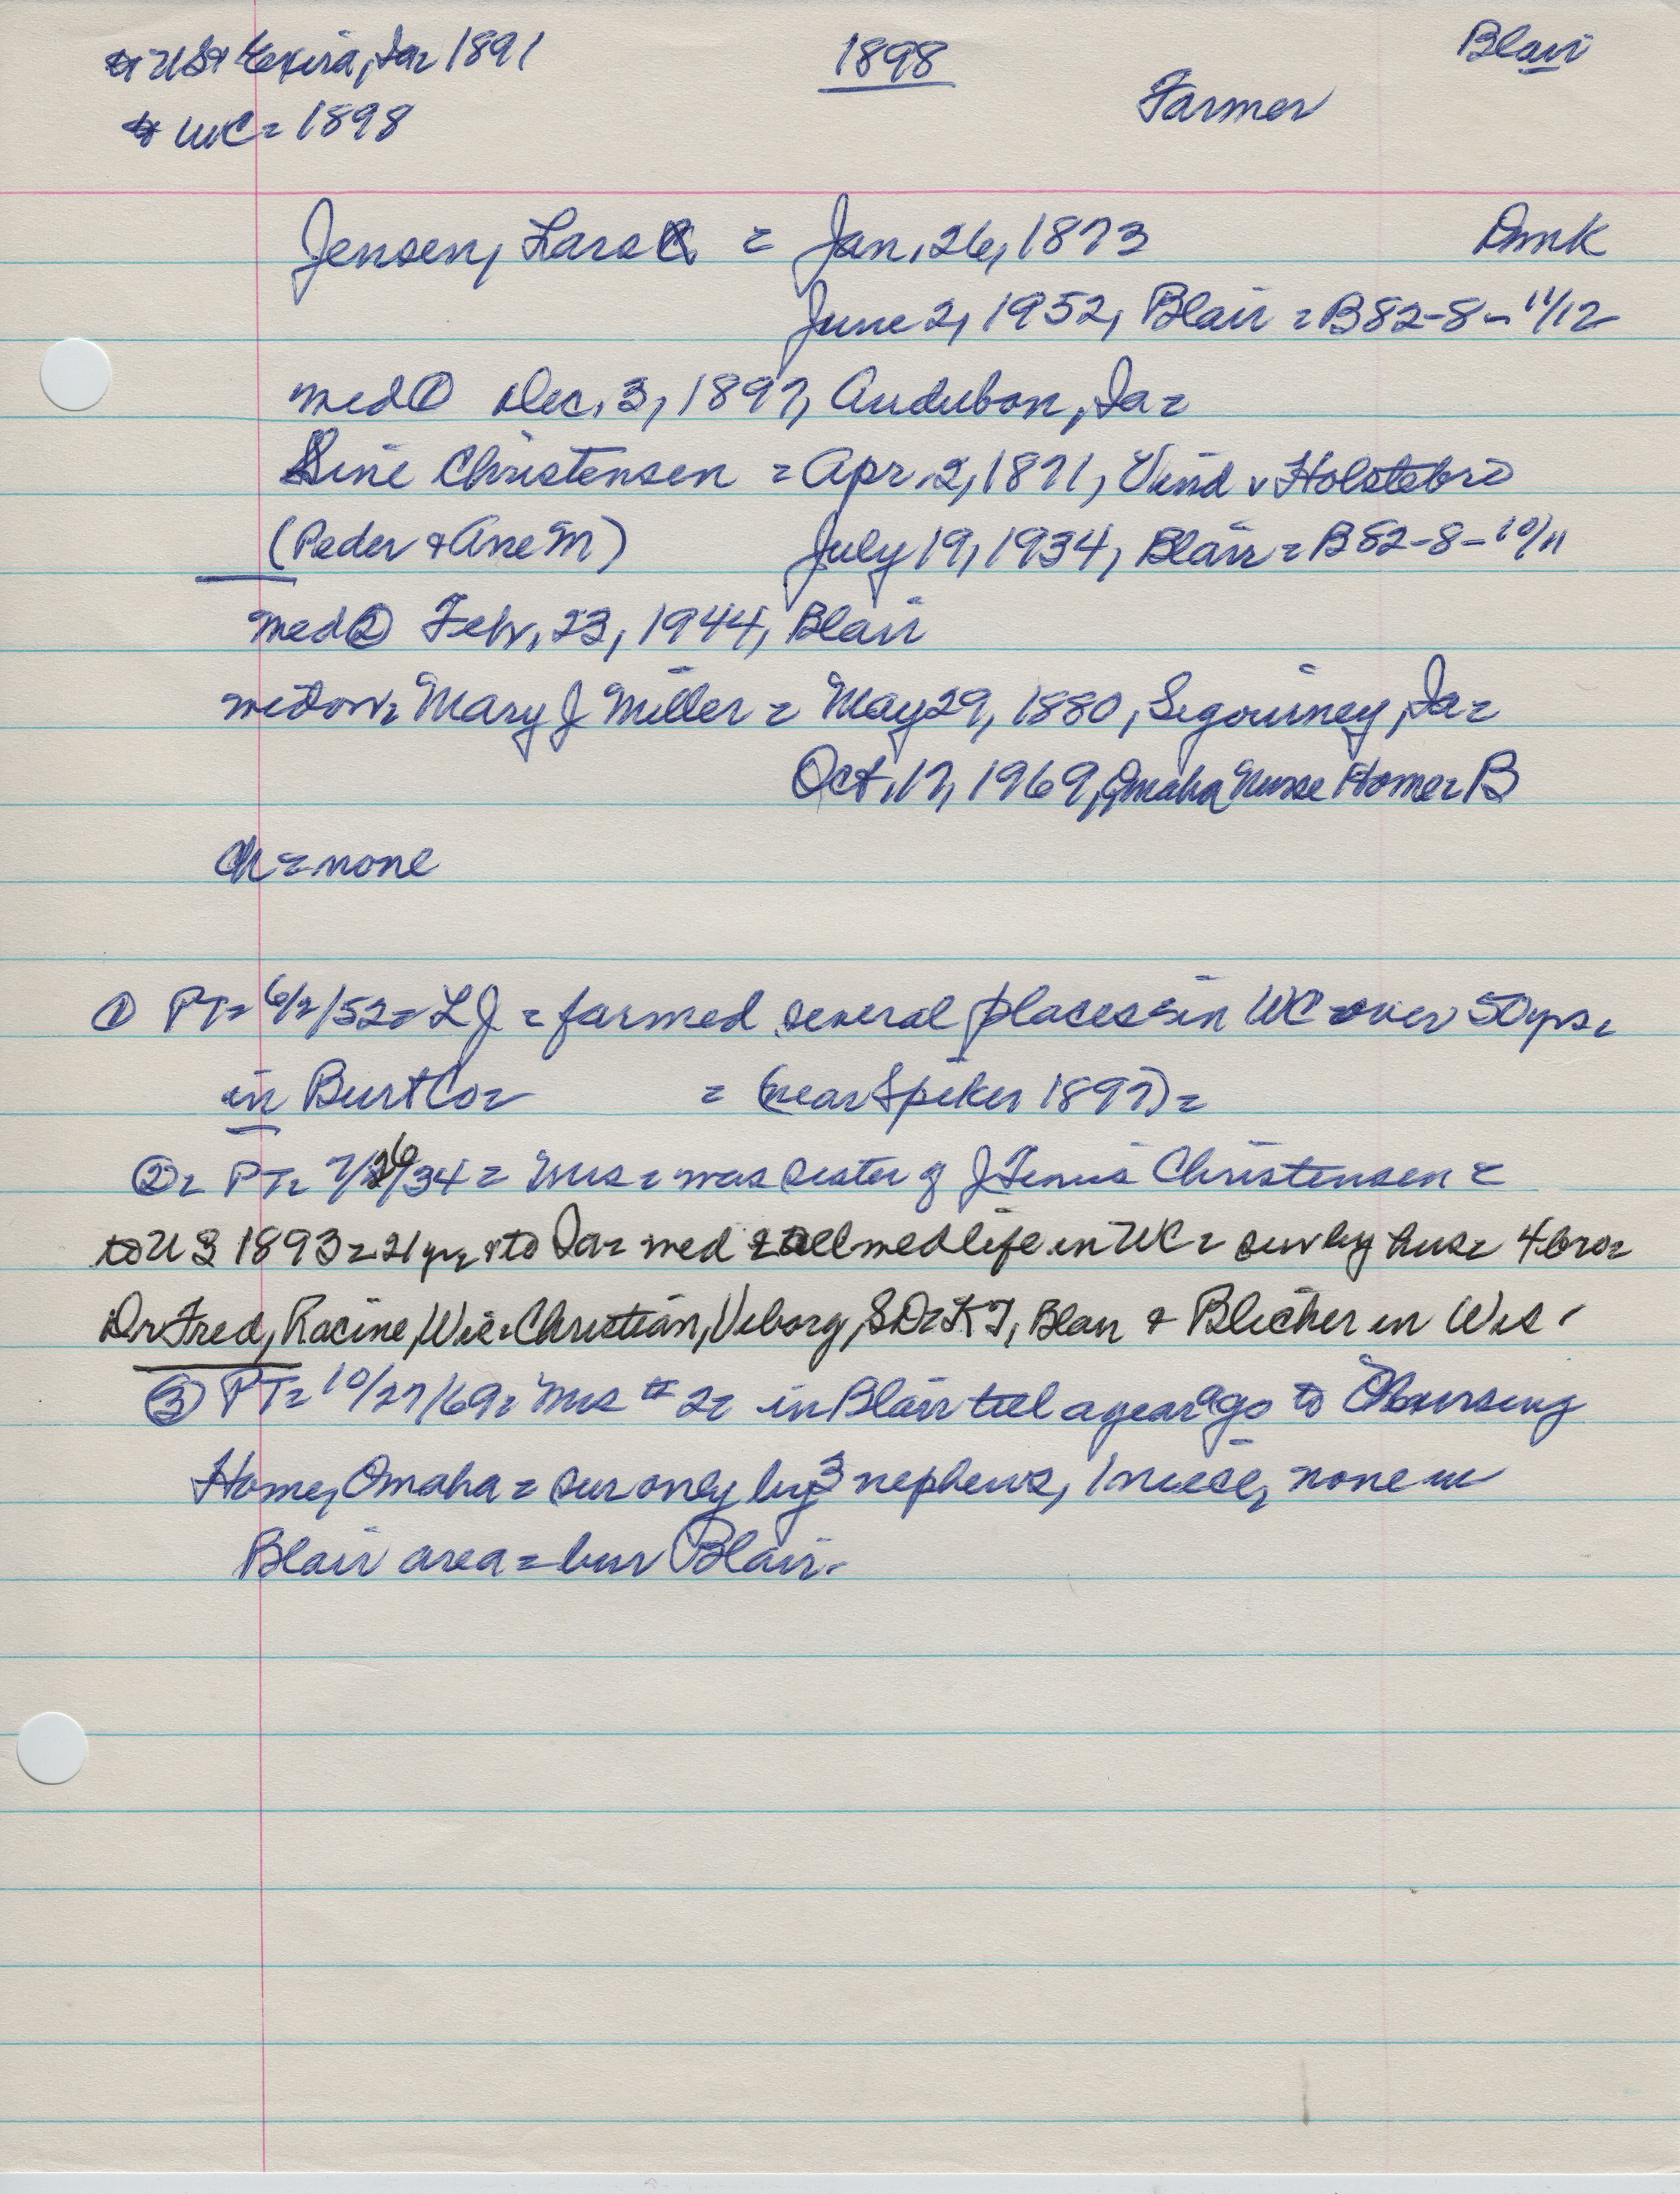 to US & Exira, Ia = 1891
1898
Blair
Farmer
to WC = 1898
Jensen, Lars = Jan. 26, 1873 Dmk
June 2, 1952, Blair = B82-8-11/12
med ① Dec. 3, 1897, Audubon, Ia =
Sine Christensen = Apr. 2, 1871, Vind v Holstebro
(Peder & Ane M) July 19, 1934, Blair = B82-8-10/11
med ② Febr. 23, 1944, Blair
widow = Mary J Miller = May 29, 1880, Sigourney, Ia =
Oct. 17, 1969, Omaha Nurse Home = B
ch = none
① PT = 6/2/52 = LJ = farmed several places in WC over 50 yrs =
in Burt Co = = (near Spiker 1897) =
② = PT = 7/26/34 = Mrs = was sister of J Tenus Christensen =
to US 1893 = 21 yr = & to Ia = med & all med life in WC = sur by hus = 4 bro =
Dr Fred, Racine, Wis = Christian, Viborg, SD = KT, Blair & Blicher in Wis.
③ PT = 10/27/69 = Mrs #2 = in Blair till a year ago to Nursing
Home, Omaha = sur only by 3 nephews, 1 niece, none in
Blair area = bur Blair.